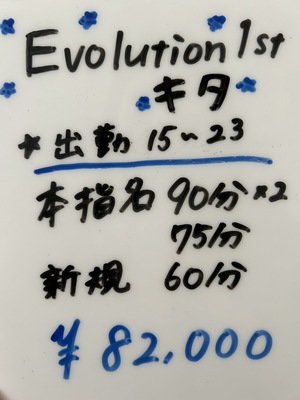 Evolution 1st
キタ
*出勤 15~23
本指名 90分×2
75分
新規 60分
¥82,000